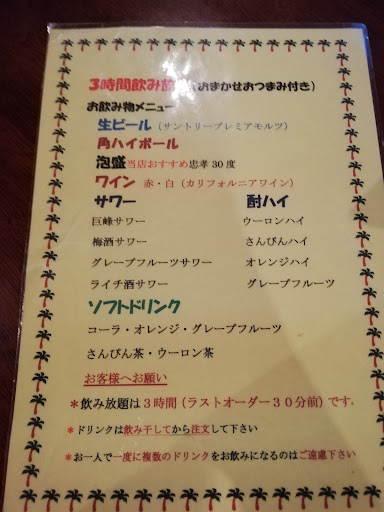 ３時間飲み放（おまかせおつまみ付き）
お飲み物メニュー
生ビール（サントリープレミアモルツ）
角ハイボール
泡盛当店おすすめ忠孝30度
ワイン 赤・白（カリフォルニアワイン）
サワー 酎ハイ
巨峰サワー ウーロンハイ
梅酒サワー さんぴんハイ
グレープフルーツサワー オレンジハイ
ライチ酒サワー グレープフルーツ
ソフトドリンク
コーラ・オレンジ・グレープフルーツ
さんぴん茶・ウーロン茶
お客様へお願い
＊飲み放題は３時間（ラストオーダー３０分前）です.
＊ドリンクは飲み干してから注文して下さい
＊お一人で一度に複数のドリンクをお飲みになるのはご遠慮下さい